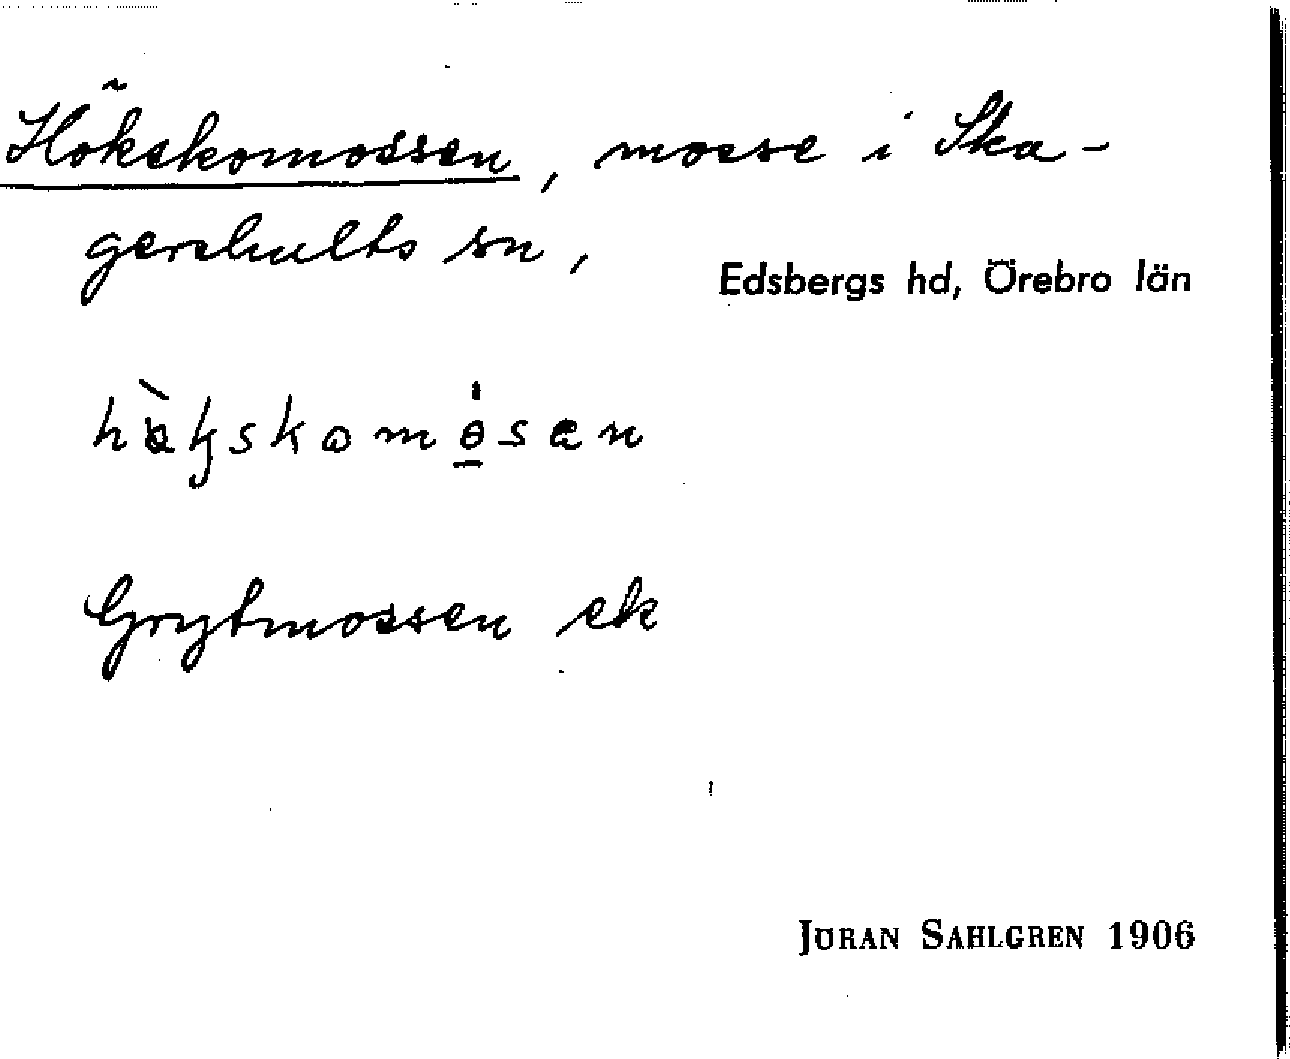 Hökskomossen, mosse i Ska-
gershults sn,
Edsbergs hd, Örebro län
Grytmossen ek
JÖRAN SAHLGREN 1906